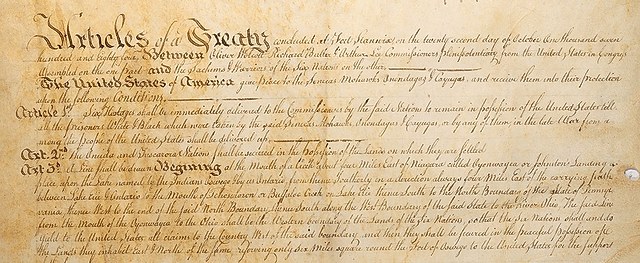 Articles of a Treaty concluded at Fort Stanwix on the twenty second day of October One thousand seven
hundred and eighty four, Between Oliver Wolcott Richard Butler & Arthur Lee Commissioners Plenipotentiary from the United States in Congress
Assembled on the one Part and the Sachems & Warriors of the Six Nations on the other.
The United States of America give Peace to the Senecas Mohawks Onondagas & Cayugas, and receive them into their protection
upon the following Conditions,
Article 1st. Six Hostages shall be immediately delivered to the Commissioners by the said Nations to remain in possession of the United States till
all the prisoners White & Black which were taken by the said Senecas Mohawks Onondagas & Cayugas or by any of them in the late War from a
mong the People of the United States shall be delivered up.
Art. 2d. The Oneida and Tuscarora Nations shall be secured in the Possession of the Lands on which they are settled
Art. 3d. A Line shall be drawn Beginning at the Mouth of a Creek about four Miles East of Niagara called Oyonwayea or Johnston's Landing
place upon the Lake named by the Indians Oswego & by us Ontario from thence Southerly in a direction always four Miles East of the carrying Path
between Lake Erie & Ontario to the Mouth of or Buffaloe Creek on Lake Erie thence South to the North Boundary of the State of Pennsyl
vania thence West to the end of the said North Boundary thence South along the West Boundary of the said State to the River Ohio. The said Line
from the Mouth of the Oyonwayea to the Ohio shall be the Western boundary of the Lands of the Six Nations, so that the Six Nations shall and do
yield to the United States all claims to the Country West of the said boundary and then they shall be secured in the peaceful Possession of
the Lands they inhabit East & North of the same, reserving only six Miles square round the Fort of Oswego to the United States for the support